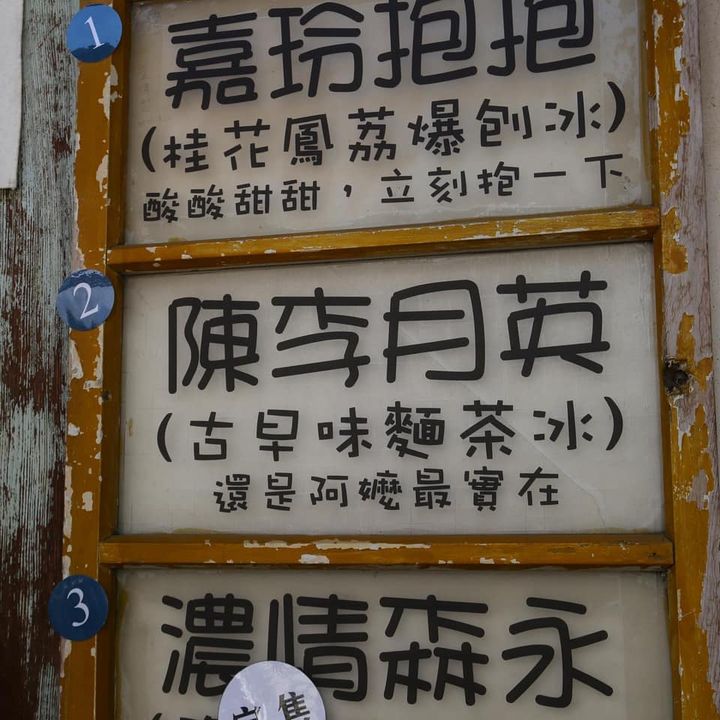 1
嘉玲抱抱
(桂花鳳荔爆刨冰)
酸酸甜甜，立刻抱一下
2
陳李月英
(古早味麵茶冰)
還是阿嬤最實在
3
濃情森永
售